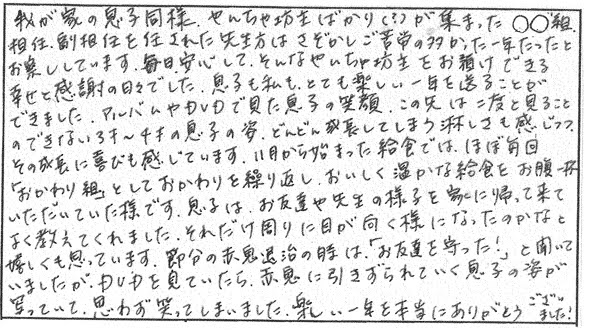 我が家の息子同様、やんちゃ坊主ばかり(?)が集まった○○組。
担任、副担任を任された先生方はさぞかしご苦労の多かった一年だったと
お察ししています。毎日安心して、そんなやんちゃ坊主をお預けできる
幸せと感謝の日々でした。息子も私も、とても楽しい一年を送ることが
できました。アルバムやDVDで見た息子の笑顔、この先は二度と見ること
のできない3才〜4才の息子の姿、どんどん成長してしまう淋しさも感じつつ、
その成長に喜びも感じています。11月から始まった給食では、ほぼ毎回
「おかわり組」としておかわりを繰り返し、おいしく温かな給食をお腹一杯
いただいていた様です。息子は、お友達や先生の様子を家に帰って来て
よく教えてくれました。それだけ周りに目が向く様になったのかなと
嬉しくも思っています。節分の赤鬼退治の時は、「お友達を守った!」と聞いて
いましたが、DVDを見ていたら、赤鬼に引きずられていく息子の姿が
写っていて、思わず笑ってしまいました。楽しい一年を本当にありがとうございました!